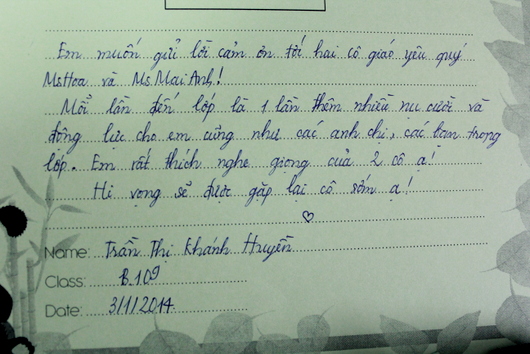 Em muốn gửi lời cảm ơn tới hai cô giáo yêu quý
Ms Hoa và Ms Mai Anh!
Mỗi lần đến lớp là 1 lần thêm nhiều nụ cười và
động lực cho em cũng như các anh chị, các bạn trong
lớp. Em rất thích nghe giọng của 2 cô ạ!
Hi vọng sẽ được gặp lại cô sớm ạ!
♡
Name: Trần Thị Khánh Huyền
Class: B109
Date: 31/1/2014